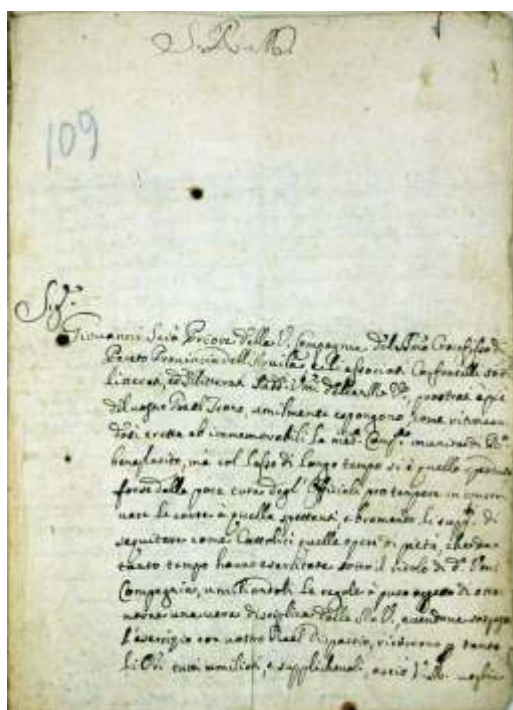 S. R. M.
109
Sig.e
Giovanni Priore della V. Compagnia del SS.mo Crocifisso di
Pereto Provincia dell'Aquila, e li associati Confratelli
letterati, ed illetterati della M. V., prostrati à piè
del vostro Real Trono, umilmente espongono, come ritrovan
dosi eretta ab immemorabili la Cong.e munita di R.o
beneplacito, mà col lasso di lungo tempo si è quello
forse dalla poca cura degl' Officiali pro tempore in conser
vare le carte à quella spettanti, e bramando li supp.ti di
seguitare come Cattolici quelle opere di pietà, che da
tanto tempo hanno esercitate sotto il titolo di d.a
Compagnia, umiliandoli le regole à puro oggetto di otte
nerne una vera disciplina dalla M. V., avendone sospeso
l'esercizio con vostro Real Dispaccio, ricorrono p. tanto
li Ori tutti umiliati, e supplichevoli, acciò V. M. voglia